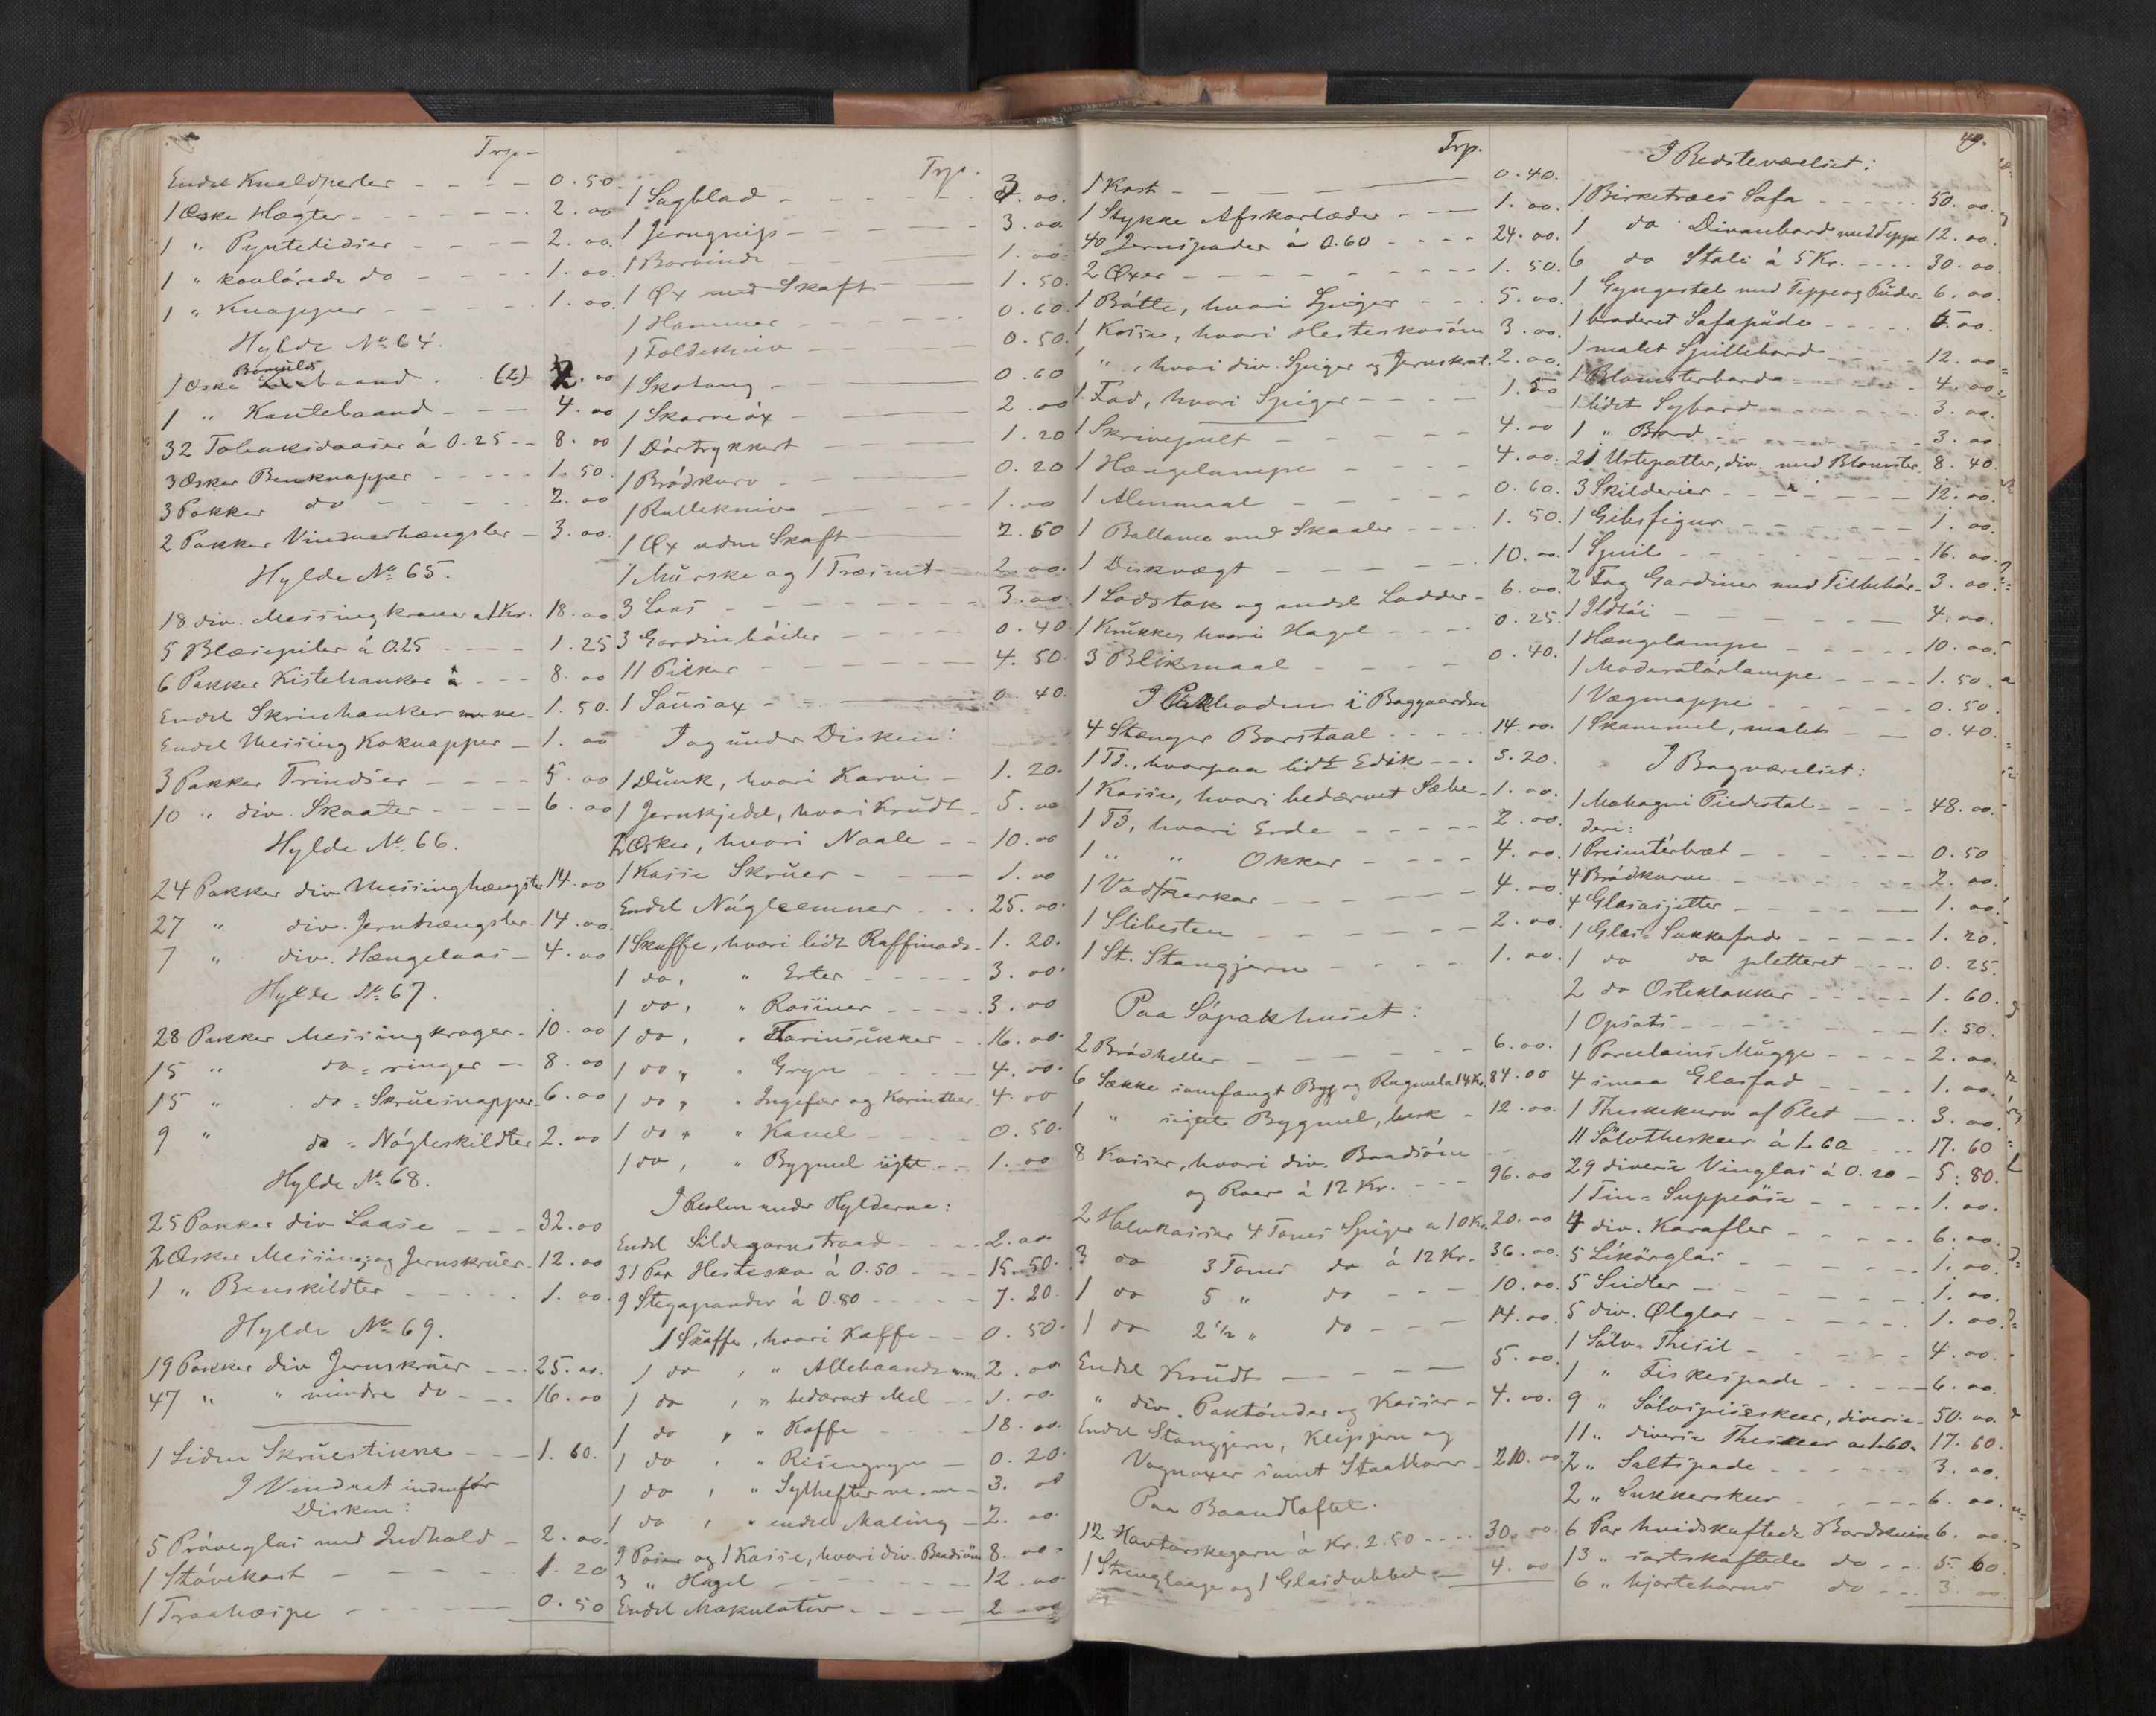 Trp-
Endel Knaldperler - - - - 0.50
1 Æske Hægter - - - - - - 2.00
1 " Pyntelidser - - - - 2.00
1 " koulörede do - - - - 1.00
1 " Knapper - - - - 1.00
Hylde No 64.
1 Æske Bomulds baand - (2) 2.00
1 " Kantebaand - - - 4.00
32 Tobaksdaaser á 0.25 - - 8.00
3 Æsker Benknapper - - - - 1.50
3 Pakker do - - - - - 2.00
2 Pakker Vindueshængsler - 3.00
Hylde No 65.
18 div. Messingkraner a 1 Kr. 18.00
5 Blæsepiler á 0.25 - - - - 1.25
6 Pakker Kistehanker à - - - 8.00
Endel Skrinhanker m. m. - 1.50
Endel Messing Koknapper - 1.00
3 Pakker Trindser - - - - 5.00
10 " div. Skaater - - - - 6.00
Hylde No 66.
24 Pakker div Messinghængsler 14.00
27 " div. Jernhængsler - 14.00
7 " div. Hængelaas - 4.00
Hylde No 67.
28 Pakker Messingkroger - 10.00
15 " do = ringer - - 8.00
15 " do = Skruesnapper - 6.00
9 " do = Nögleskildter 2.00
Hylde No 68.
25 Pakker div Laase - - - 32.00
2 Æsker Messing og Jernskruer - 12.00
1 " Benskildter - - - - - 1.00
Hylde No 69.
19 Pakker div Jernskruer - - - 25.00
47 " " mindre do - - - 16.00
1 Liden Skruestikke - - - 1.60
I Vinduet indenfor
Disken:
5 Pröveglas med Indhold - 2.00
1 Stövekost - - - - - 1.20
1 Traahæspe - - - - - 0.50
Trp.
1 Sagblad - - - - - - 3.00
1 Jerngreip - - - - - 3.00
1 Borvinde - - 1.00
1 Øx med Skaft - - 1.50
1 Hammer - - - - - - 0.60
1 Foldekniv - - - - 0.50
1 Skotang - - 0.60
1 Skarveöx - - 2.00
1 Dörtrykkert - - 1.20
1 Brödkurv - - 0.20
1 Rullekniv - - 1.00
1 Øx uden Skaft - - 2.50
1 Murske og 1 Træsnit - - 2.00
3 Laas - - - - - - - 3.00
3 Gardinböiler - - - - 0.40
11 Pilker - - - - - - 4.50
1 Sausax - - 0.40
I og under Disken:
1 Dunk, hvori Karvi - - 1.20
1 Jernkjedel, hvori Krudt - 5.00
2 Æsker, hvori Naale - - 10.00
1 Kasse Skruer - - - - 1.00
Endel Nögleemner - - - 25.00
1 Skuffe, hvori lidt Raffinade - 1.20
1 do, " Erter - - - - - 3.00
1 do, " Rosiner - - - - - 3.00
1 do, " Farinsukker - - 16.00
1 do, " Gryn - - - - 4.00
1 do, " Ingefær og Korinther - 4.00
1 do, " Kanel - - - - 0.50
1 do, " Bygmel sigtet - - 1.00
I Reolen under Hylderne:
Endel Sildegarnstraad - - - - 2.00
31 Par Hestesko á 0.50 - - - 15.50
9 Stegepander á 0.80 - - - - - 7.20
1 Skuffe, hvori Kaffe - - 0.50
1 do , " Allehaande m.m. 2.00
1 do , " bedærvet Mel - - 1.00
1 do , " Kaffe - - - - 18.00
1 do , " Risengryn - - 0.20
1 do , " Sylhefter m. m - 3.00
1 do , " endel Maling - 2.00
9 Poser og 1 Kasse, hvori div. Baadsöm 8.00
3 " Hagel - - - - - - 12.00
Endel Makulatur - - - - 2.00
Trp.
1 Kost - - 0.40
1 Stykke Afskorlæder - - - 1.00
40 Jernspader á 0.60 - - - - 24.00
2 Øxer - - - - - - - - - - 1.50
1 Bötte, hvori Spiger - - - 5.00
1 Kasse, hvori Hesteskosöm 3.00
" , hvori div. Spiger og Jernskrot. 2.00
1 Fad, hvori Spiger - - - - 1.50
1 Skrivepult - - - - - 4.00
1 Hængelampe - - - - 4.00
1 Alenmaal - - - - - 0.60
1 Ballance med Skaaler - - - - 1.50
1 Diskvægt - - - - - - 10.00
1 Ladstok og endel Ladder - 6.00
1 Krukke, hvori Hagel - - - - 0.25
3 Blikmaal - - - - - 0.40
I Pakboden i Baggaarden
4 Stænger Borstaal - - - - 14.00
1 Td., hvorpaa lidt Edik - - - 3.20
1 Kasse, hvori bedærvet Sæbe - 1.00
1 Td, hvori Erde - - - - - 2.00
1 " " Okker - - - - 4.00
1 Vadstærkar - - - - - 4.00
1 Slibesten - - - - - - - 2.00
1 St. Stangjern - - - - - 1.00
Paa Söpakhuset:
2 Brödheller - - - - - - - 6.00
6 Sække samfængt Byg og Rugmel a 14 Kr. 84.00
1 " sigtet Bygmel, besk - 12.00
8 Kasser, hvori div. Baadsöm
og Roer á 12 Kr. - - - 96.00
2 Halvkasser 4 Toms Spiger a 10 Kr. 20.00
3 do 3 Toms do á 12 Kr. - 36.00
1 do 5 " do - - - 10.00
1 do 2 1/2 " do - - - 14.00
Endel Krudt - - - - - 5.00
" div. Paktönder og Kasser - 4.00
Endel Stangjern, Klipjern og
Vognaxer samt Staalhorer - 210.00
Paa Baandloftet.
12 Havtorskegarn á Kr. 2.50 - - - - 30.00
1 Strenglaage og 1 Glasdubbel - 4.00
49.
I Bedsteværelset:
1 Birketræes Sofa - - - - - - 50.00
1 do Divanbord med Teppe 12.00
6 do Stole á 5 Kr. - - - - 30.00
1 Gyngestol med Teppe og Puder - 6.00
1 broderet Sofapude - - - - - 5.00
1 malet Spillebord - - - - - 12.00
1 Blomsterbord - - - - - - 4.00
1 lidet Sybord - - - - - - - 3.00
1 " Bord - - - - - - - - 3.00
21 Urtepotter, div. med Blomster 8.40
3 Skilderier - - - - - - - 12.00
1 Gibsfigur - - - - - - - 1.00
1 Speil - - - - - - - - 16.00
2 Fag Gardiner med Tilbehör - 3.00
1 Ildtöi - - 4.00
1 Hængelampe - - - - - - 10.00
1 Moderatörlampe - - - - 1.50
1 Vægmappe - - - - - - 0.50
1 Skammel, malet - - - 0.40
I Bagværelset:
1 Mahogni Piedestal - - - - 48.00
deri:
1 Presenterbræt - - - - - - 0.50
4 Brödkurve - - - - - - - 2.00
4 Glasasjetter - - - - - - 1.00
1 Glas-Sukkefad - - - - - 1.20
1 do do pletteret - - - - 0.25
2 do Osteklokker - - - - - 1.60
1 Opsats - - - - - - - 1.50
1 Porcelains Mugge - - - - 2.00
4 smaa Glasfad - - - - 1.00
1 Theskekurv af Plet - - - 3.00
11 Sölvtheskeer á 1.60 - - - 17.60
29 diverse Vinglas á 0.20 - 5.80
1 Tin-Suppeöse - - - - - 1.00
4 div. Karafler - - - - - 6.00
5 Likörglas - - - - - - 1.00
5 Seidler - - - - - - - 1.00
5 div. Ølglas - - - - - - 1.00
1 Sölv-Thesil - - - - - - 4.00
1 " Fiskespade - - - - - 6.00
9 " Sölvspiseskeer, diverse - 50.00
11 " diverse Theskeer a 1.60 - 17.60
2 " Saltspade - - - - - - 3.00
2 " Sukkerskeer - - - - - 6.00
6 Par hvidskaftede Bordknive 6.00
13 " sortskaftede do - - - 5.60
6 " hjortehorns do - - - 3.00